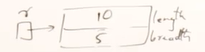 r
10
5
length
breadth